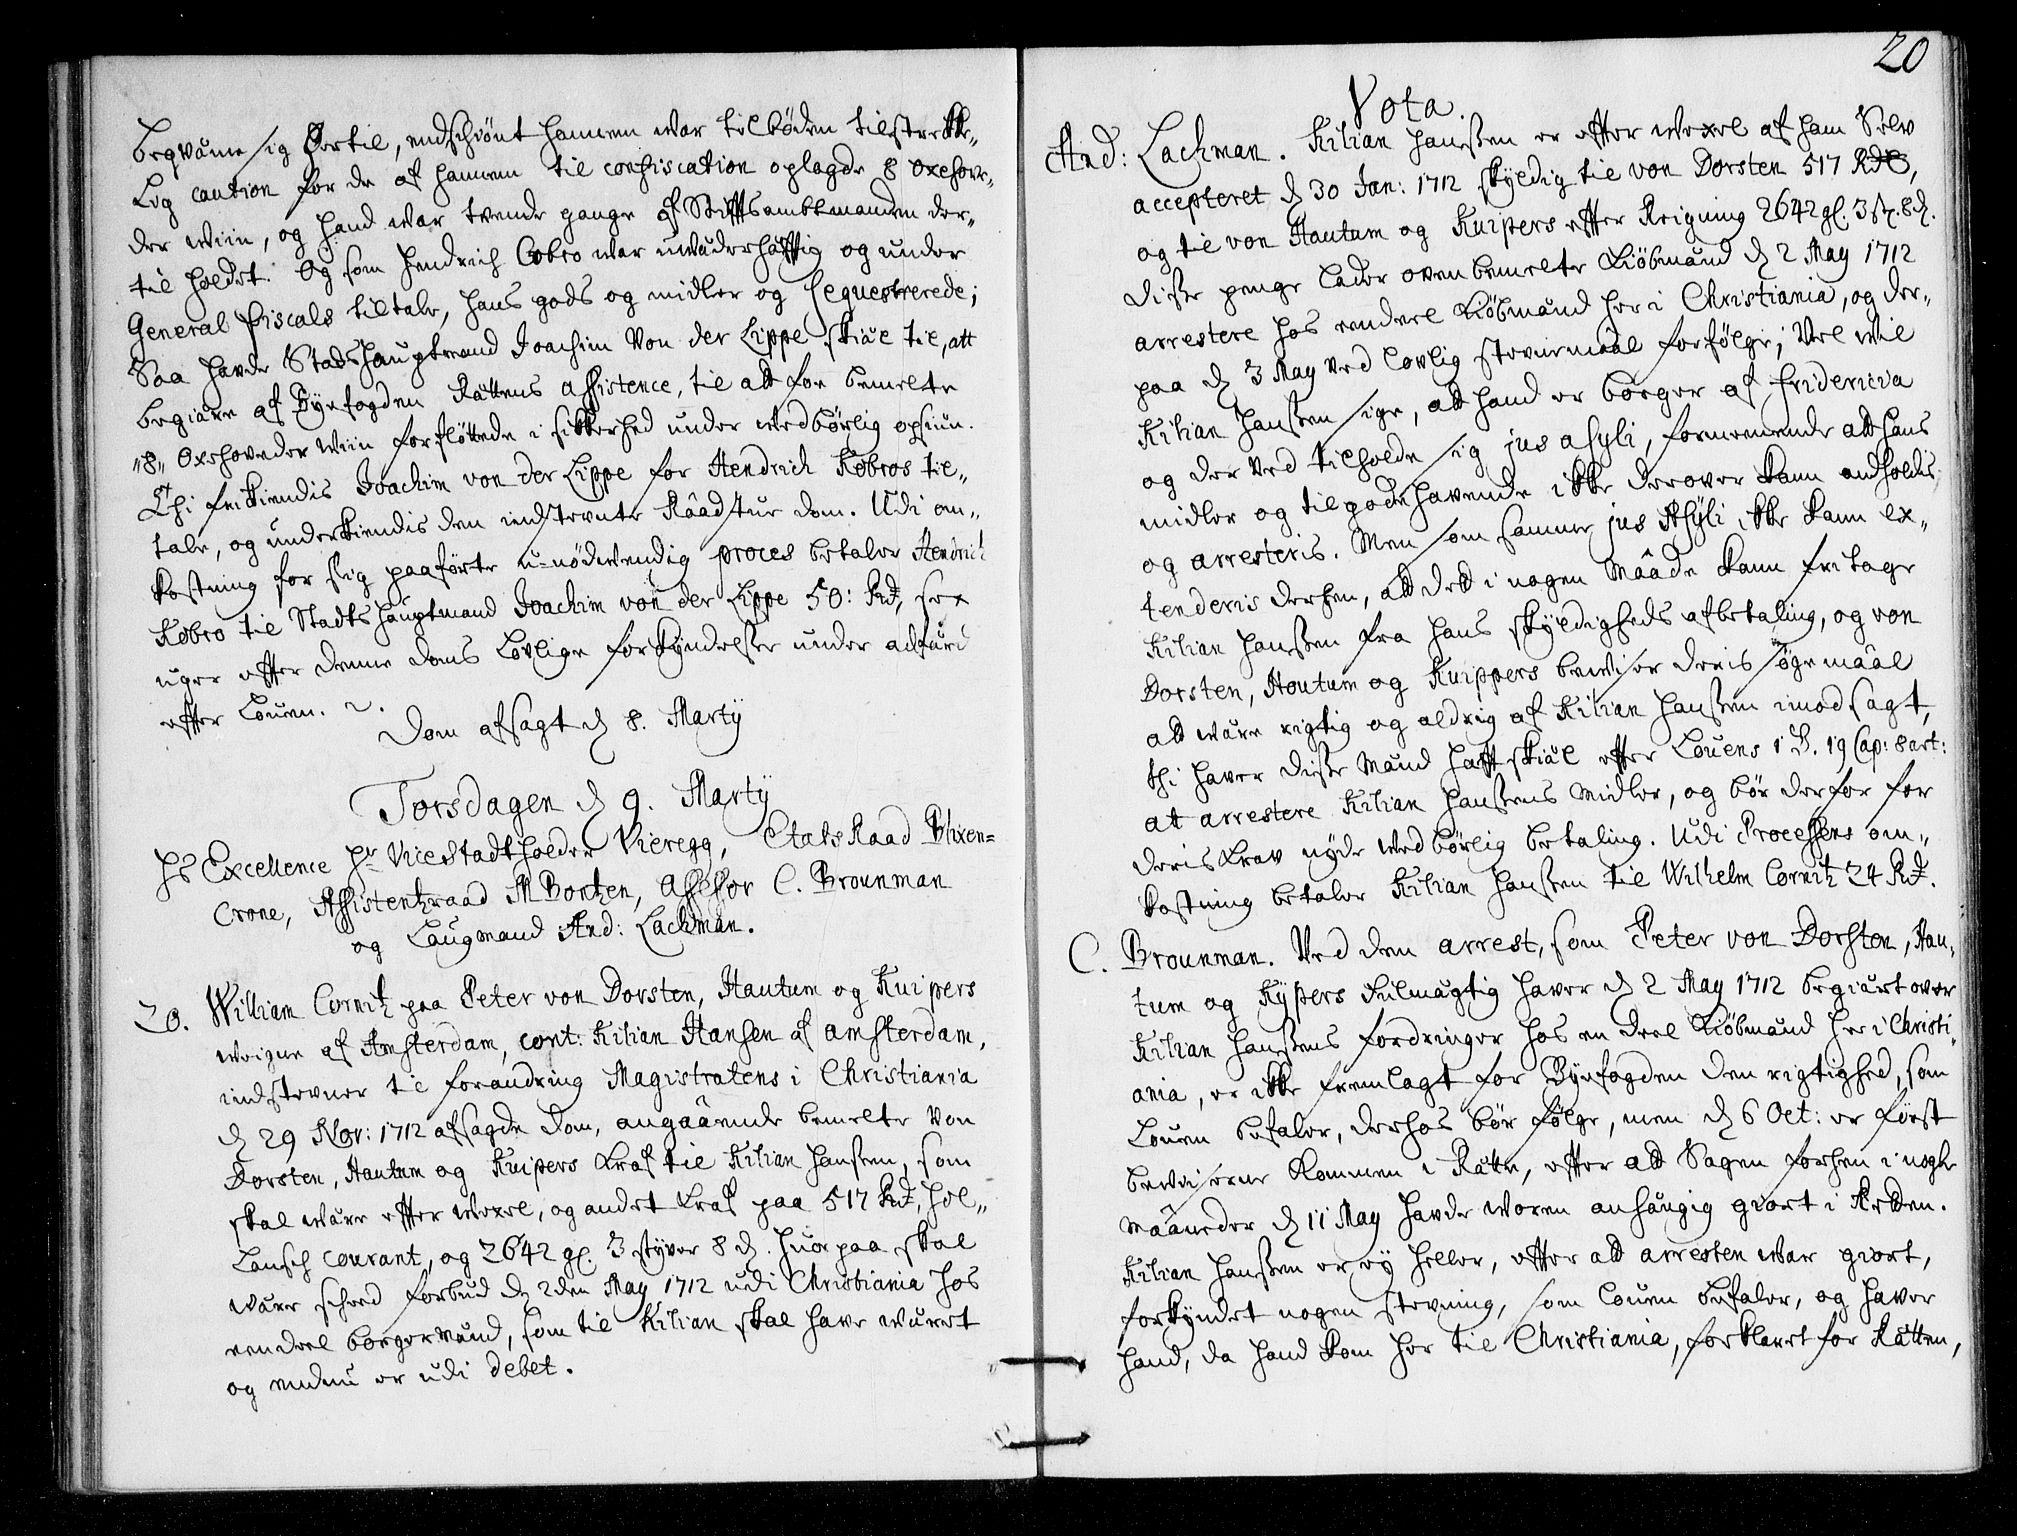 beqvæme sig hertil, endschiönt hannem war tilböden tilstrekke„
lig caution for de af hannem til confiscation oplagde 8 oxehove„
der wiin, og hand war tvende gange af Stifftsambtmanden der„
til holdet. Og som Hendrich Cobro war uwæderhæftig og under
General fiscals tiltale, hans gods og midler og sequestrerede;
Saa havde Stadshauptmand Joachim Von der Lippe skiæl til, att
begiære af Byefogden Rættens assistence, til att for bemelte
„8„ Oxehoveder wiin forflöttede i sikkerhed under wedbörlig opsiun.
Thi frikiendis Joachim von der Lippe for Hendrich Kobros til„
tale, og underkiendis den indstevnte Raadstue dom. Udi om„
kostning for slig paaförte u-nödwendig proces betaler Hendrich
Kobro til Stadtshauptmand Joachim von der Lippe 50: Rd, sex
uger effter denne doms Lovlige forkyndelsse under adfærd
effter Louen.
Dom afsagt d 8. Marty
Torsdagen d 9. Marty
Hs Excellence Hr Vicestadtholder Vieregg, Etats Raad Blixen=
crone, Assistentzraad M Bortzen, Assessor C. Brounman
og Laugmand And: Lachman.
20. William Cornitz paa Peter von Dorsten, Hautum og Kuipers
weigne af Amsterdam, cont: Kilian Hansen af amsterdam,
indstevner til forandring Magistratens i Christiania
d 29 Nov: 1712 afsagde dom, angaaende bemelte von
Dorsten, Hautum og Kuipers Kraf til Kilian Hanssen, som
skal være effter wexel, og andet Kraf paa 517 Rd, hol„
landsch courant, og 2642 gl. 3 styver 8 d. huorpaa skal
være scheed forbud d 2den May 1712 udi Christiania hos
eendeel borgervænd, som til Kilian skal have wæret
og endnu er udi debet.
20
Vota.
And: Lachman. Kilian Hanssen er effter wexel af ham Selv
accepteret d 30 Jan: 1712 skyldig til von Dorsten 517 Rd,
og til von Hautum og Kuipers effter Reigning 2642 gl. 3 st. 8 d.
disse penge lader ovenbemelte Kiöbmænd d 2 May 1712
arrestere hos eendeel Kiöbmænd her i Christiania, og der„
paa d 3 May ved lovlig stevnemaal forfölge; Vel wil
Kilian Hanssen sige, att hand er borger af Fridericia
og der ved tilholde sig jus asyli, formeenende att hans
midler og tilgodehavende ikke derover kann andholdis
og arresteris. Men som samme jus Asyli ikke kann ex„
tenderis derhen, att det i nogen Maade kann fritage
Kilian Hanssen fra hans skyldigheds afbetaling, og von
Dorsten, Houtum og Kuippers bewiser deris sögemaal
att være rigtig og aldrig af Kilian Hanssen imodsagt,
thi haver disse Mænd hafft skiæl effter Louens 1 B. 19 Cap: 8 art:
at arrestere Kilian Hanssens Midler, og bör derfor for
deris Krav nyde wedbörlig betaling. Udi Processens om„
kostning betaler Kilian Hanssen til Wilhelm Cornitz 24 Rd.
C. Brounman. Ved den arrest, som Peter von Dorsten, Hau„
tum og Kypers fulmægtig haver d 2 May 1712 begiært over
Kilian Hanssens fordringer hos en deel Kiöbmænd her i Christi„
ania, er ikke fremlagt for Byefogden den rigtighed, som
Louen befaler, derhos bör fölge, men d 6 Oct: er först
bewiserne kommen i Rætte, effter att Sagen forhen i nogle
Maaneder d 11 May havde woren anhængig giort i Retten.
Kilian Hanssen er ey heller, effter att arresten war giort,
forkyndet nogen stevning, som Louen befaler, og haver
hand, da hand kom her til Christiania, forklaret for Rætten,